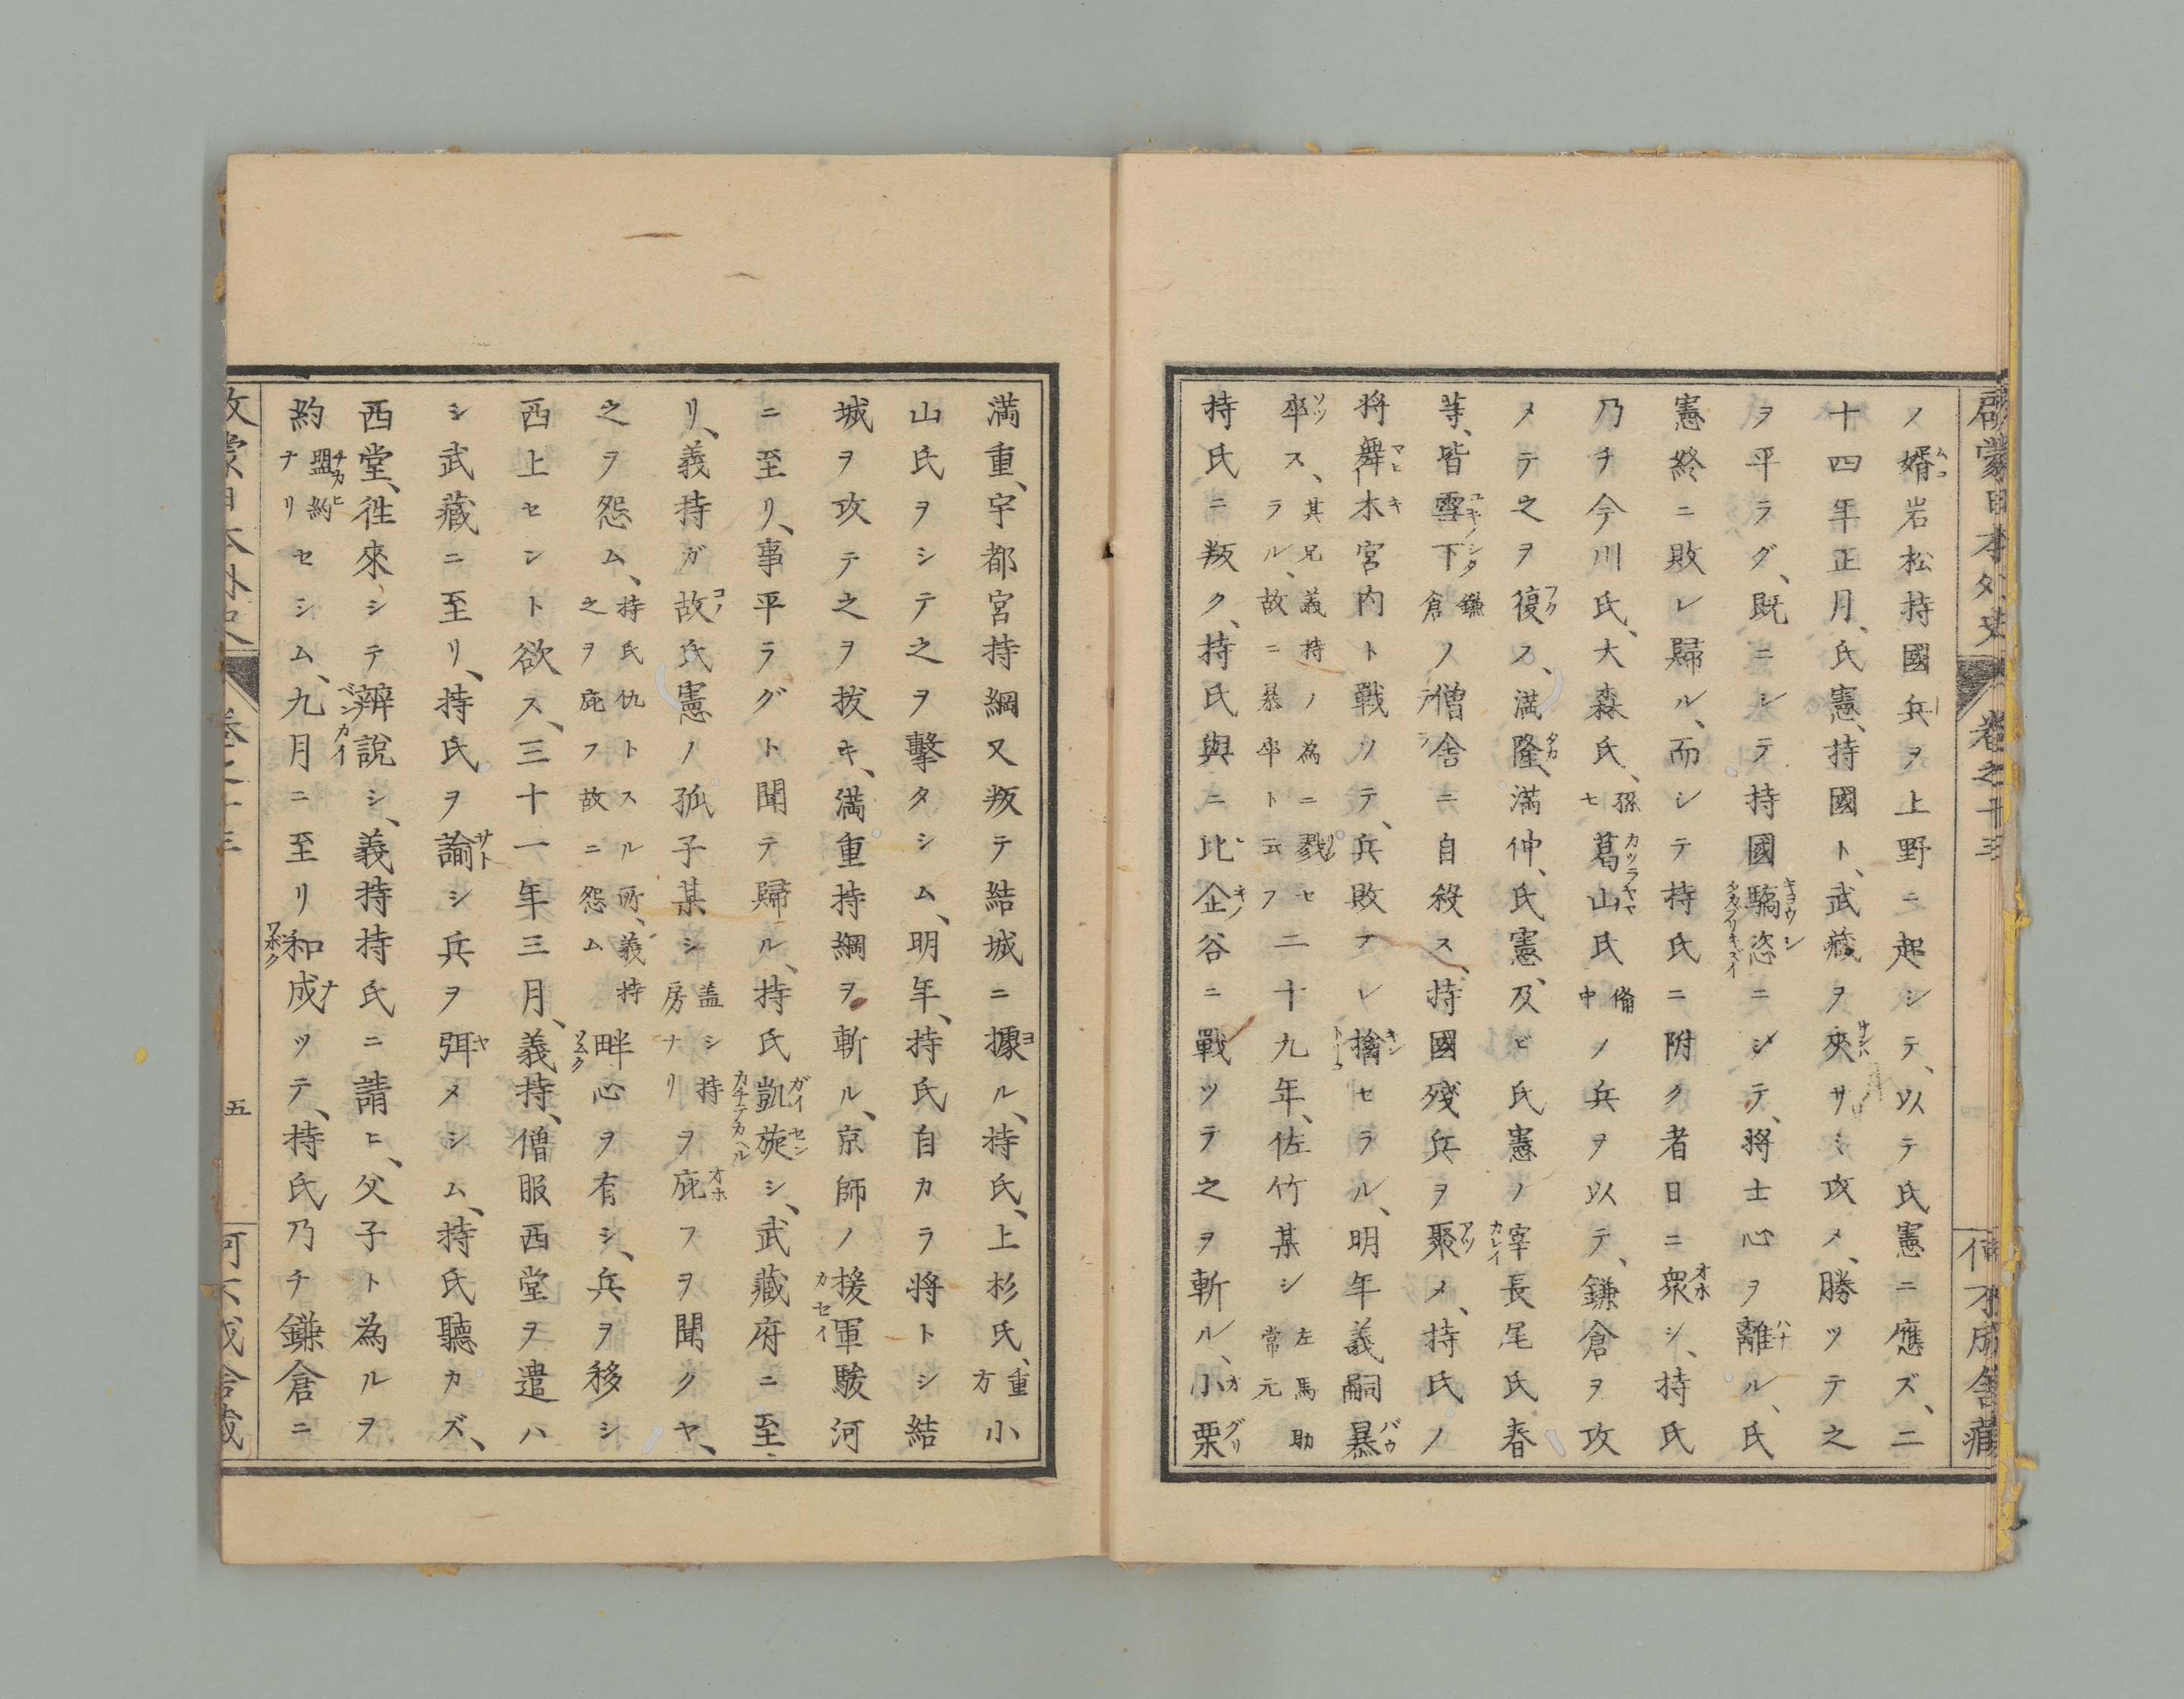 啓蒙日本外史 卷之十三
ノ婿岩松持國兵ヲ上野ニ起シテ、以テ氏憲ニ應ズ、二
十四年正月、氏憲、持國ト、武藏ヲ夾サミ攻メ、勝ツテ之
ヲ平ラグ、既ニシテ持國驕恣ニシテ、將士心ヲ離ル、氏
憲終ニ敗レ歸ル、而シテ持氏ニ附ク者日ニ衆シ、持氏
乃チ今川氏、大森氏、孫七葛山氏備中ノ兵ヲ以テ、鎌倉ヲ攻
メテ之ヲ復ス、滿隆、滿仲、氏憲、及ビ氏憲ノ宰長尾氏春
等、皆雪下鎌倉ノ僧舎ニ自殺ス、持國殘兵ヲ聚メ、持氏ノ
將舞木宮内ト戰ツテ、兵敗ラレ擒セラル、明年義嗣暴
卒ス、其兄義持ノ為ニ戮セラル、故ニ暴卒ト云フ二十九年、佐竹某シ左馬助常元
持氏ニ叛ク、持氏與ニ比企谷ニ戰ツテ之ヲ斬ル、小栗
滿重、宇都宮持綱又叛テ結城ニ據ル、持氏、上杉氏、重方小
山氏ヲシテ之ヲ擊タシム、明年、持氏自カラ將トシ結
城ヲ攻テ之ヲ拔キ、滿重持綱ヲ斬ル、京師ノ援軍駿河
ニ至リ、事平ラグト聞テ歸ル、持氏凱旋シ、武藏府ニ至
リ、義持ガ故氏憲ノ孤子某シ蓋シ持房ナリヲ庇フヲ聞クヤ、
之ヲ怨ム、持氏仇トスル所、義持之ヲ庇フ故ニ怨ム畔心ヲ有シ、兵ヲ移シ
西上セント欲ス、三十一年三月、義持、僧服西堂ヲ遣ハ
シ武藏ニ至リ、持氏ヲ諭シ兵ヲ弭メシム、持氏聽カズ、
西堂、徃來シテ辨說シ、義持持氏ニ請ヒ、父子ト為ルヲ
約盟約ナリセシム、九月ニ至リ和成ツテ、持氏乃チ鎌倉ニ
五